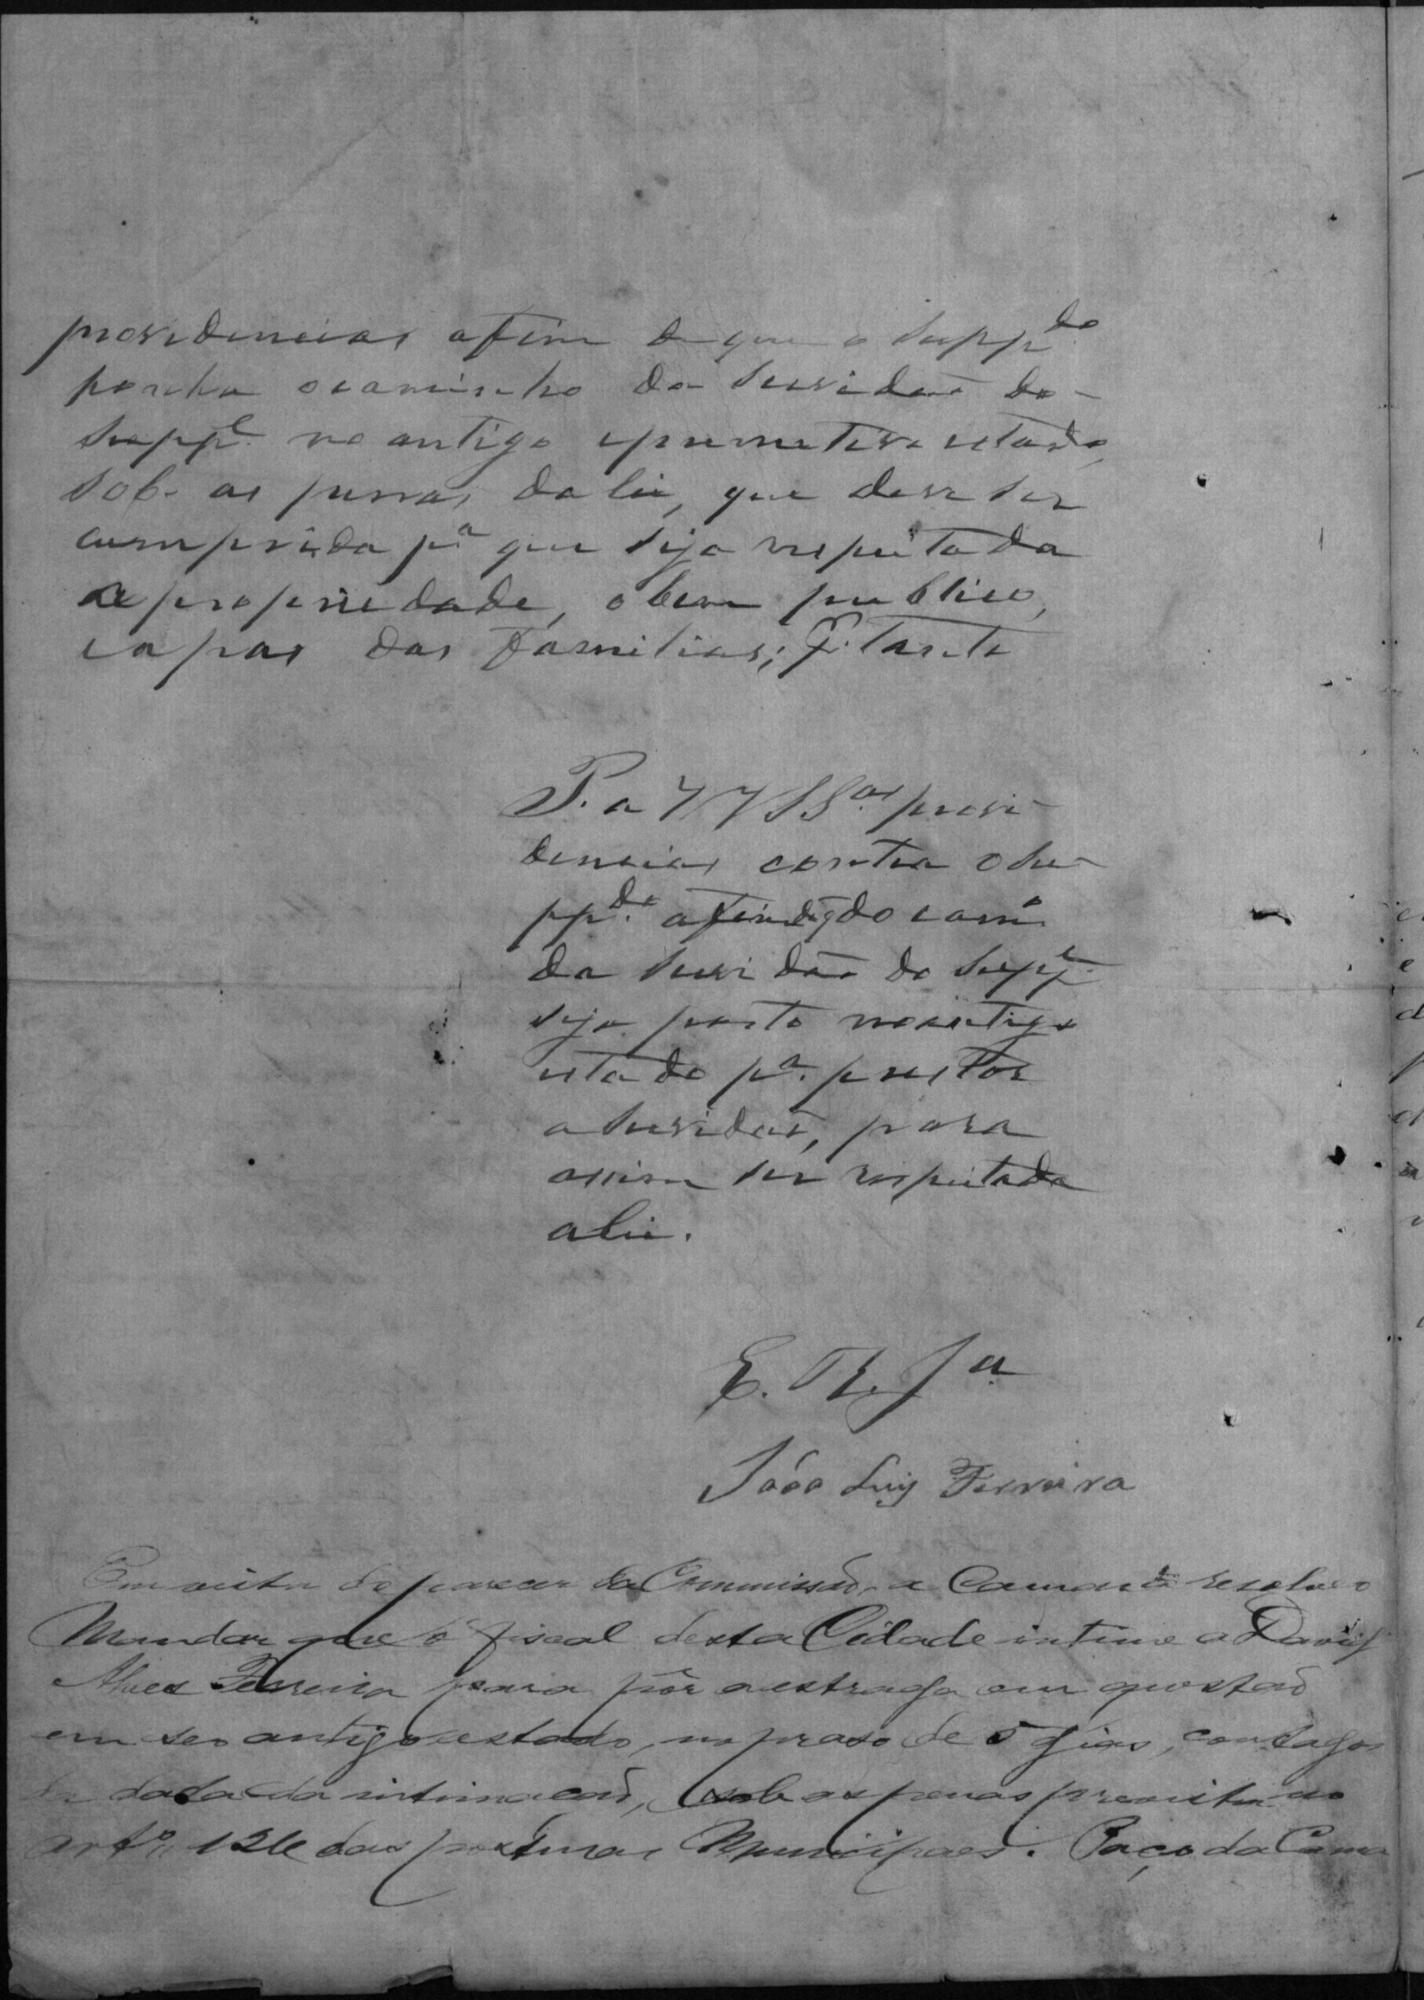 providencias afim de que o Suppdo
ponha o caminho da Servidaõ do
Suppe no antigo e premetivo estado,
sob as penas da lei, que deve ser
cumprida pa que seja respeitada
a propriedade, o bem publico,
e a pas das familias; P. tanto
P. a VV SSas provi-
dencias contra o Su-
ppdo afim de q do camo
da Servidão do Suppe
seja posto no antigo
estado pa prestar
a Servidaõ, para
assim ser respeitada
a lei.
E. R. Ja
João Luis Ferreira
Em vista do parecer da Commissaõ, a Camara resolveo
Mandar que o fiscal desta Cidade intime a David
Alves Ferreira para pôr a estrada em questaõ
em seo antigo estado, no praso de 5 dias, contados
da data da intimacaõ, sob as penas previstas no
arto 126 das posturas Municipaes. Paço da Cama